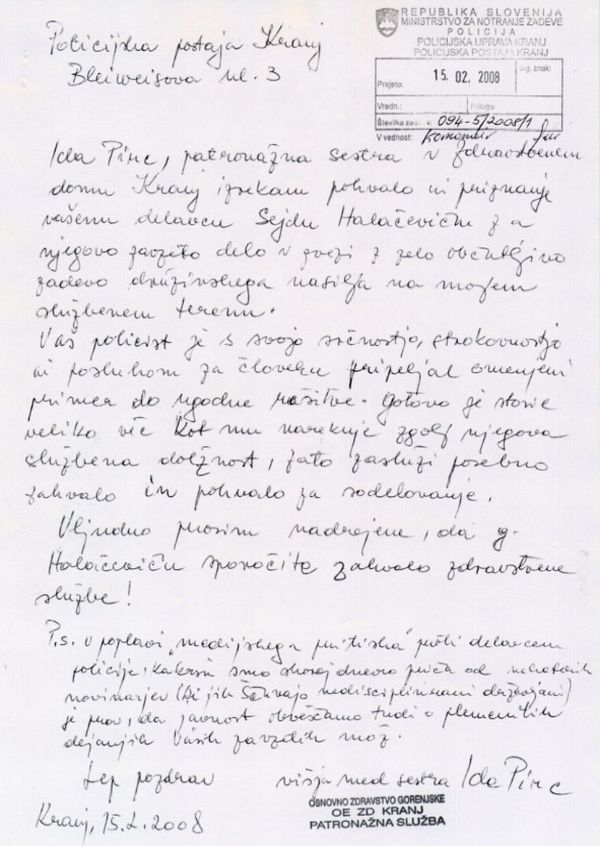 Policijska postaja Kranj
Bleiweisova ul. 3
REPUBLIKA SLOVENIJA
MINISTRSTVO ZA NOTRANJE ZADEVE
POLICIJA
POLICIJSKA UPRAVA KRANJ
POLICIJSKA POSTAJA KRANJ
Prejeto: 15 02. 2008 Sig. znak:
Vredn.: Priloge:
Številka 094-5/2008/1
V vednost:
Ida Pirc, patronažna sestra v Zdravstvenem
domu Kranj izrekam pohvalo in priznanje
vašemu delavcu Sejdu Halačeviću za
njegovo zavzeto delo v zvezi z zelo občutljivo
zadevo družinskega nasilja na mojem
službenem terenu.
Vaš policist je s svojo srčnostjo, strokovnostjo
in posluhom za človeka pripeljal omenjeni
primer do ugodne rešitve. Gotovo je storil
veliko več kot mu narekuje zgolj njegova
službena dolžnost, zato zasluži posebno
zahvalo in pohvalo za sodelovanje.
Vljudno prosim nadrejene, da g.
Halačeviću sporočite zahvalo zdravstvene
službe!
P.s. v poplavi "medijskega pritiska" proti delavcem
policije, kakršni smo skoraj dnevno priča od nekaterih
novinarjev (ki jih ščuvajo nedisciplinirani državljani)
je prav, da javnost obveščamo tudi o plemenitih
dejanjih Vaših zavzetih mož.
Lep pozdrav višja med sestra Ida Pirc
OSNOVNO ZDRAVSTVO GORENJSKE
OE ZD KRANJ
PATRONAŽNA SLUŽBA
Kranj, 15.2.2008